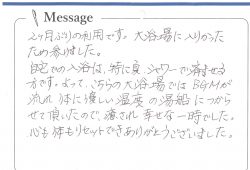 Message
2ヶ月ぶりの利用です。大浴場に入りたかった
ため参りました。
自宅での入浴は、特に夏、シャワーで済ませる
方です。よって、こちらの大浴場ではBGMが
流れ体に優しい温度の湯船につから
せて頂いたので、癒され幸せな一時でした。
心も体もリセットできありがとうございました。